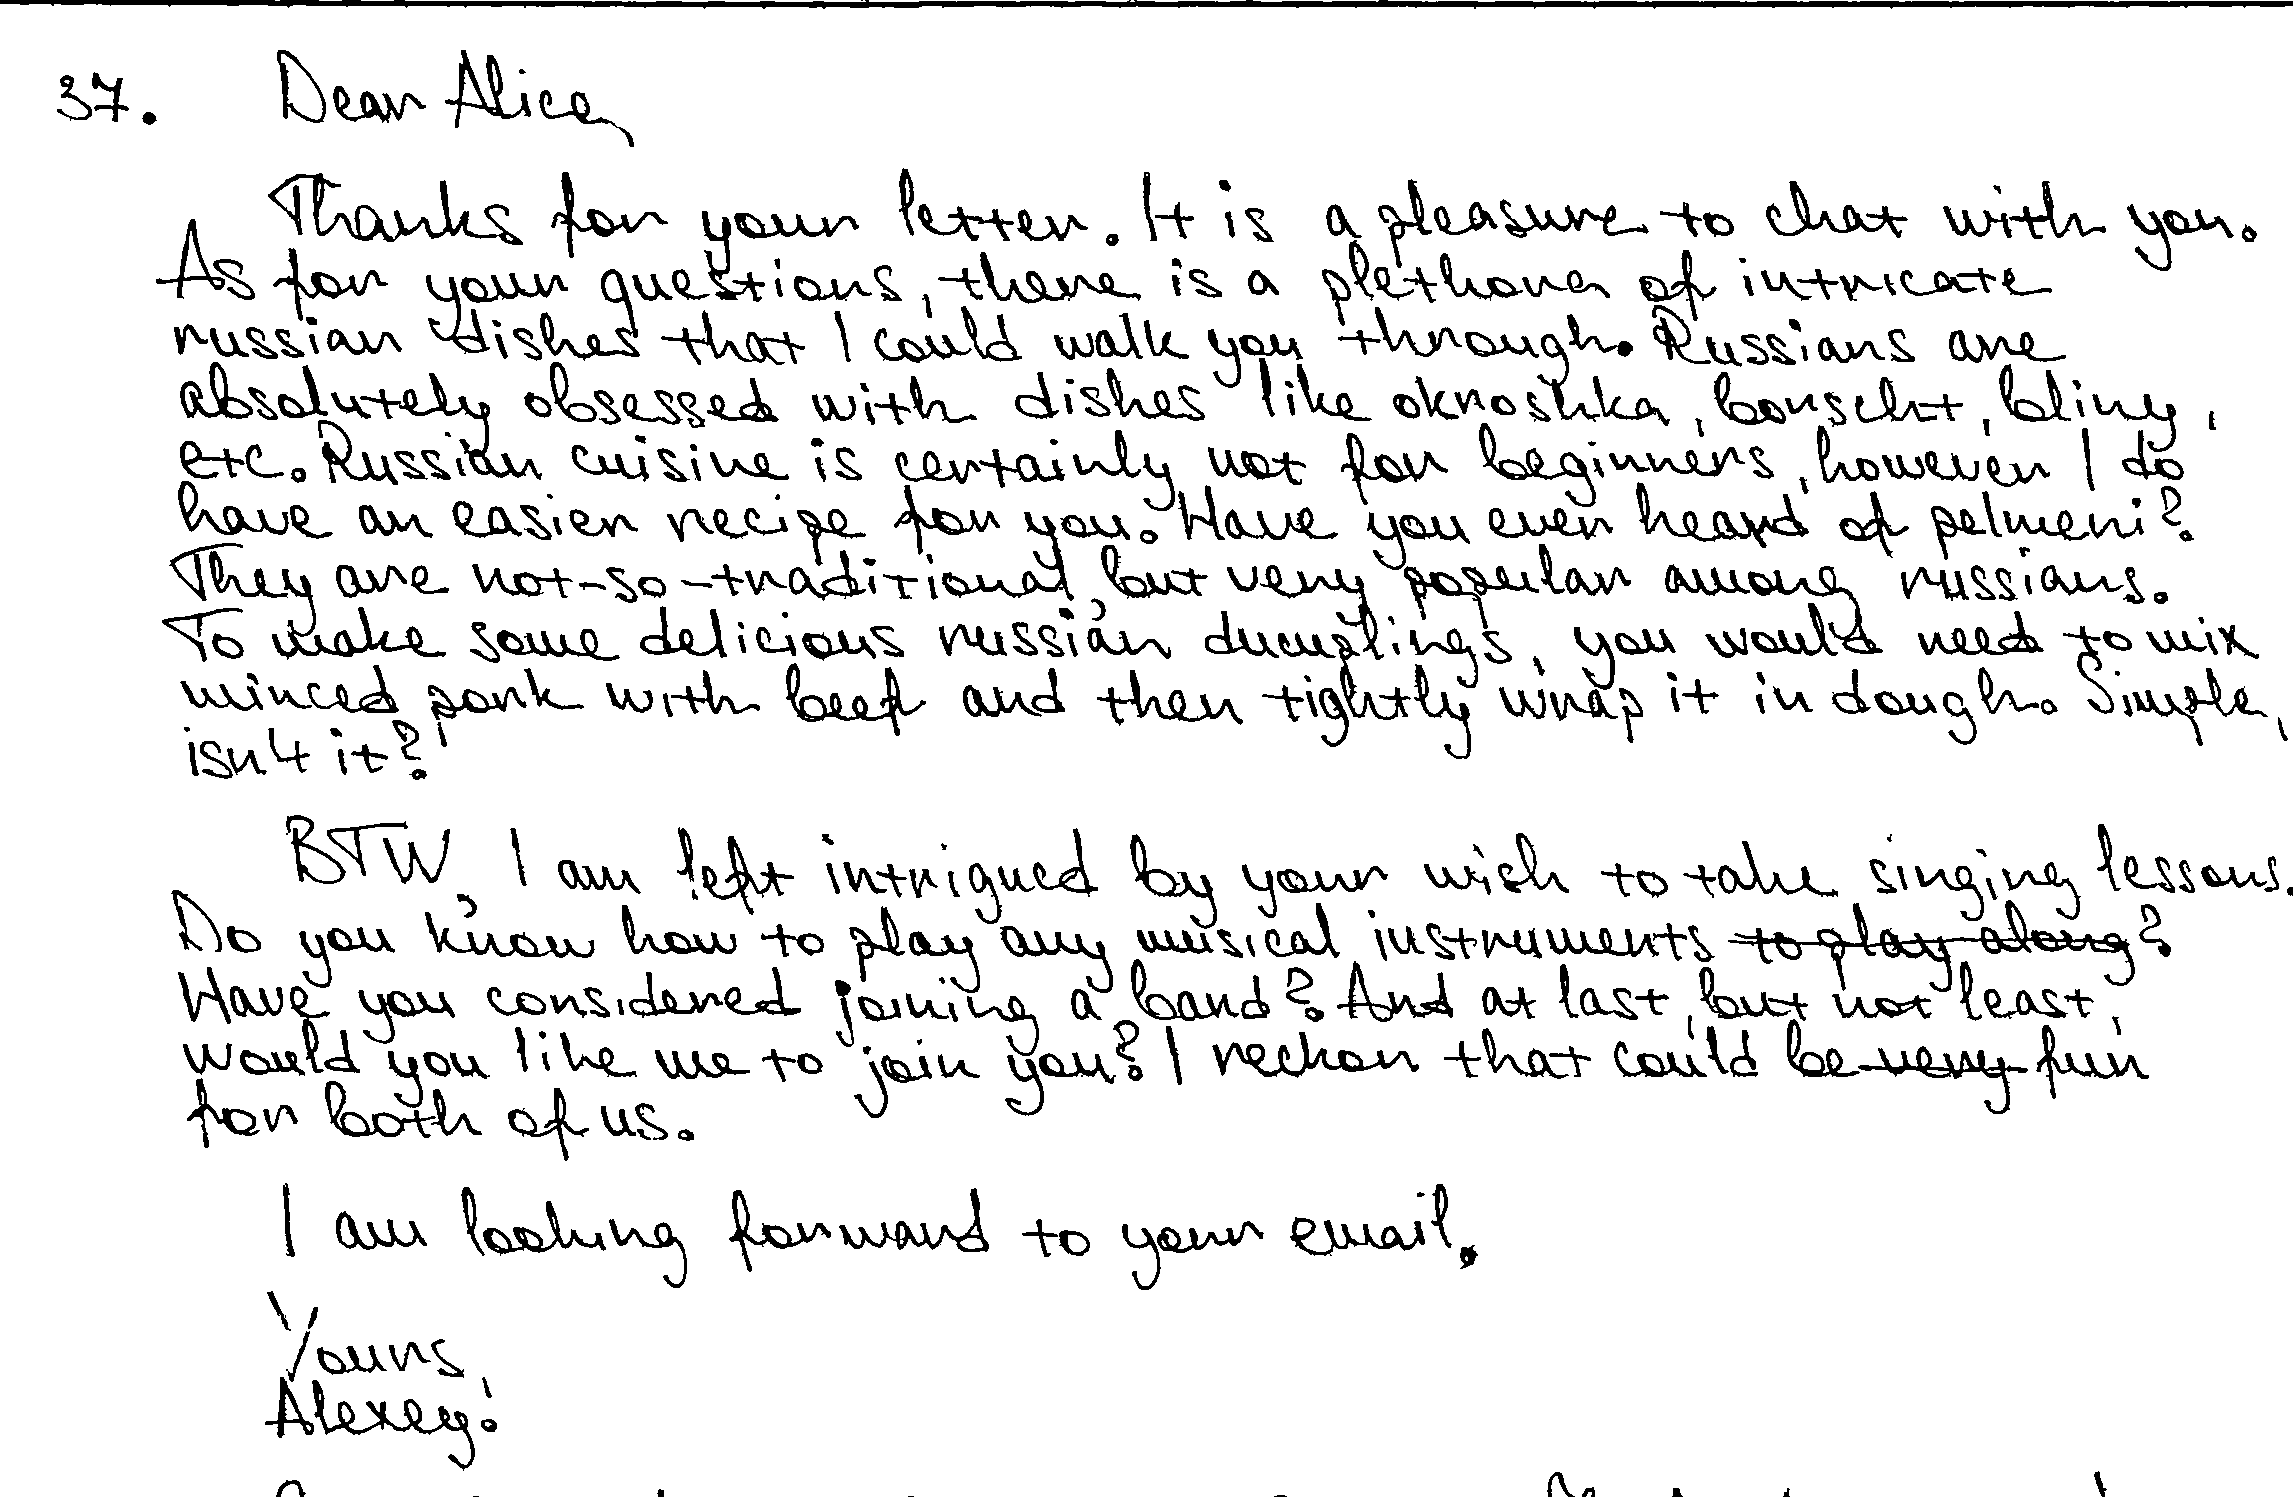 37. Dear Alice,
Thanks for your letter. It is a pleasure to chat with you.
As for your questions, there is a plethora of intricate
russian dishes that I could walk you through. Russians are
absolutely obsessed with dishes like okroshka, borscht, bliny,
etc. Russian cuisine is certainly not for beginners, however I do
have an easier recipe for you. Have you ever heard of pelmeni?
They are not-so-traditional, but very popular among russians.
To make some delicious russian dumplings, you would need to mix
minced pork with beef and then tightly wrap it in dough. Simple,
isn't it?
BTW, I am left intrigued by your wish to take singing lessons.
Do you know how to play any musical instruments to play along?
Have you considered joining a band? And at last, but not least,
would you like me to join you? I reckon that could be very fun
for both of us.
I am looking forward to your email.
Yours,
Alexey.